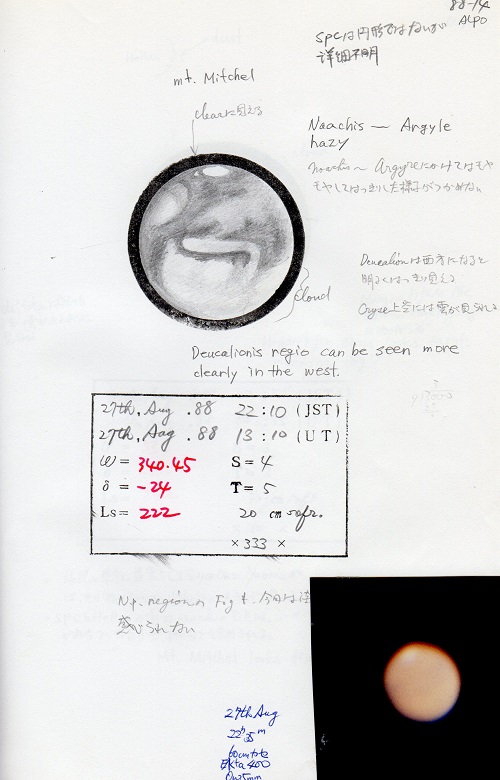 88-14
ALPO
SPCは円形ではないが
詳細不明
mt. Mitchel
clearに見える
Noachis — Argyle
hazy
noachis〜Argyreにかけてはモヤ
モヤしてはっきりした様子がつかめない
Deucalionは西方になると
明るくはっきり見える
Cryse上空には雲が見られる
cloud
Deucalionis regio can be seen more
clearly in the west.
27th, Aug .88 22:10 (JST)
27th, Aug .88 13:10 (UT)
ω = 340.45 S = 4
δ = -24 T = 5
Ls = 222 20 cm refr.
×333 ×
Np. regionの Fog も、今日は
感じられない
27th Aug
22h 35m
Ekta 400